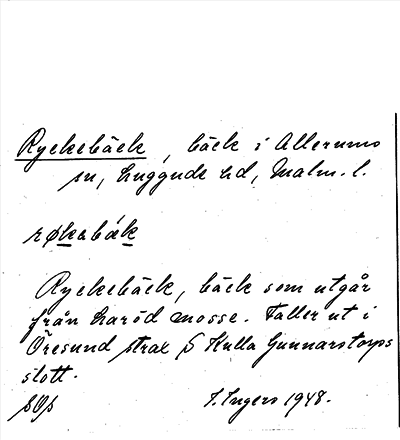 Ryckebäck, bäck i Allerums
sn, Luggude hd, Malm. l.
røkabäk
Ryckebäck, bäck som utgår
från Laröd mosse. Faller ut i
Öresund strax S Kulla Gunnarstorps
slott.
I. Ingers 1948.